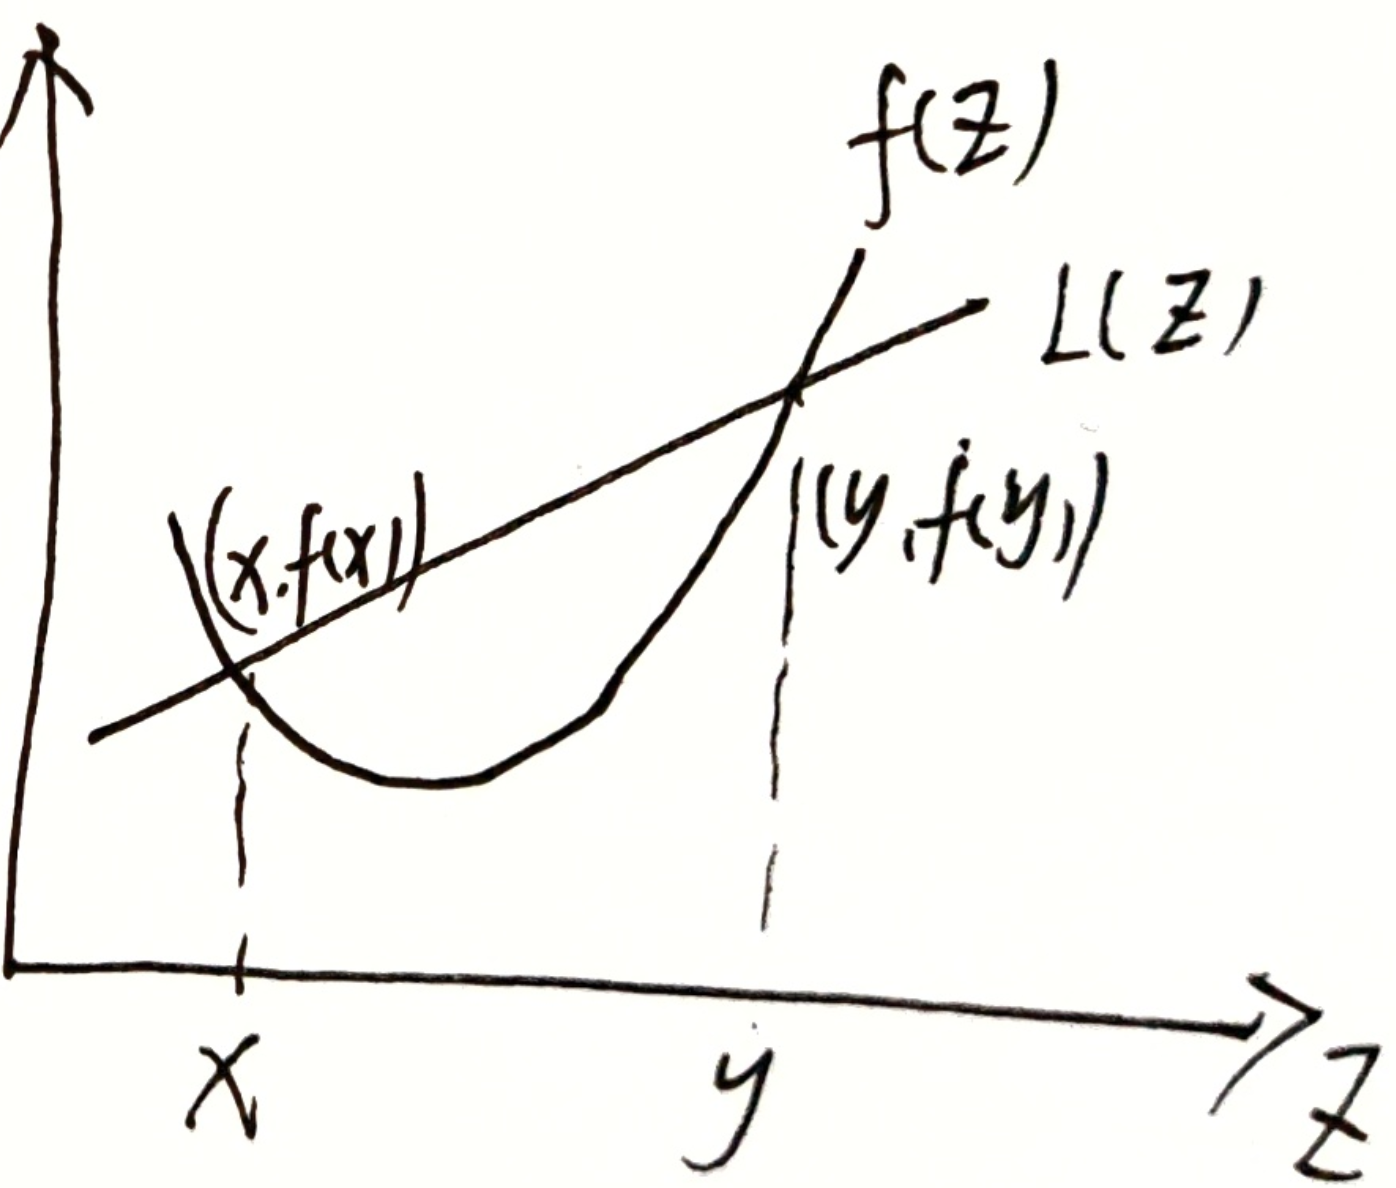 f(z)
L(z)
(x,f(x))
(y,f(y))
x
y
z